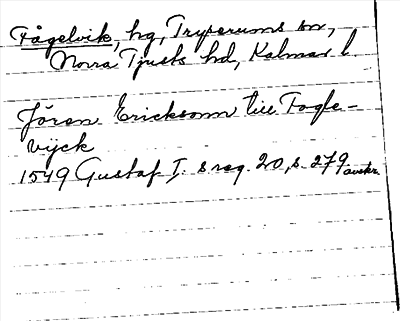 Fågelvik, hg, Tryserums sn,
Norra Tjusts hd, Kalmar l.
Jören Ericksonn till Fogle-
vijck
1549 Gustaf I: s reg. 20, s. 279 avskr.